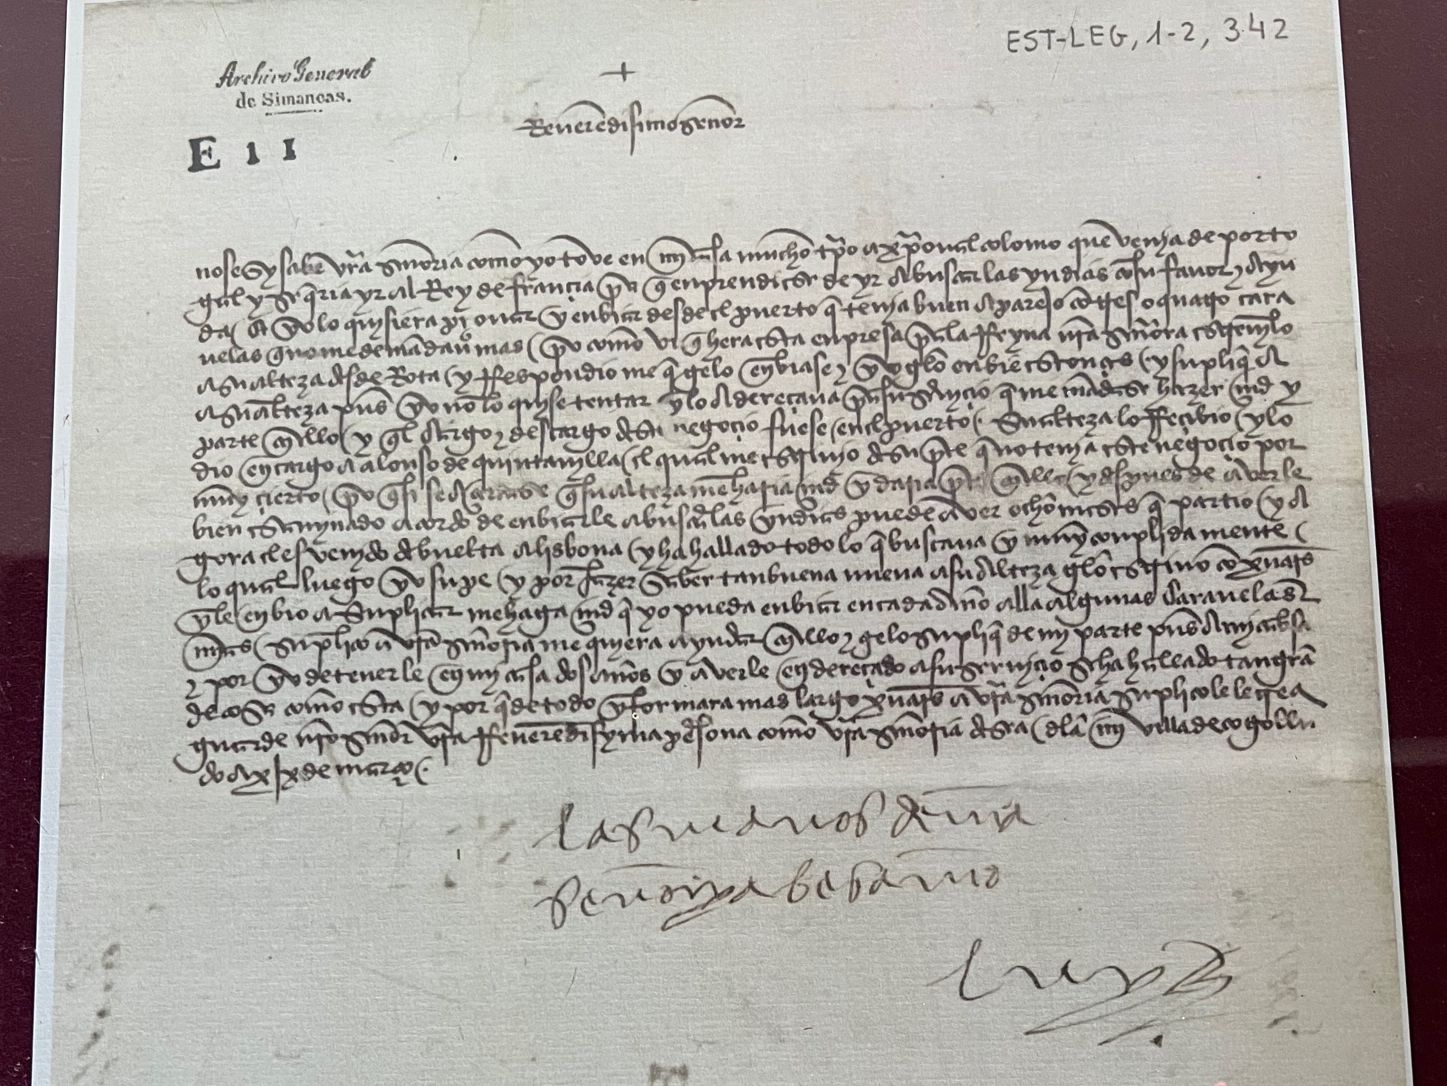 EST-LEG, 1-2, 342
Archivo General
de Simancas.
E 1 1
+
Reverēdisimo señor
no se sy sabe vr̄a señoria como yo tove en mi casa mucho tpo a xp̄oual colomo que venia de porto
gal y se q̄ria yr al Rey de françia pa q̄ enprendiese de yr a buscar las yndias con su fauor y ayu
da / e yo lo quisiera prouar y enbiar desde el puerto q̄ tenia buen aparejo con tres o quatro cara
uelas q̄ no me demādaua mas / pero como vi q̄ hera esta enpresa pa la Reyna nr̄a señora escreuilo
a su alteza desde Rota / y Respondio me q̄ gelo enbiase y yo gelo enbie estonçes / y supliq̄ a
su alteza pues yo no lo quise tentar y lo adereçaua pa su seruiçio q̄ me mādase hazer md y
parte en ello / y q̄l cargo y descargo de su negoçio fuese en el puerto / Su alteza lo Reçibio y lo
dio en cargo a alonso de quintanilla / el qual me escriuio de su parte q̄ no tenia este negoçio por
muy çierto / pero q̄ si se açertase q̄ su alteza me haria md y daria parte en ello / y despues de averle
bien esaminado acordo de enbiarle a buscar las yndias puede aver ocho meses q̄ partio / y a
gora el es venido de buelta a lisbona / y ha hallado todo lo q̄ buscaua y muy conplidamente /
lo qual luego yo supe / y por fazer saber tan buena nueua a su alteza gelo escriuo con xuares
y le enbio a suplicar me haga md q̄ yo pueda enbiar en cada año alla algunas carauelas
mias / suplico a vr̄a señoria me quiera ayudar en ello y gelo supliq̄ de mi parte pues a mi cabsa
y por yo detenerle en mi casa dos años y averle endereçado a su seruiçio se ha hallado tan grā
de cosa como esta / y por q̄ de todo ynformara mas largo xuares a vr̄a señoria suplico le le crea
guarde nr̄o señor vr̄a Reverēdisyma persona como vr̄a señoria desea / de la mi villa de cogollu
do a xjx de março /.
las manos de vr̄a
señoria besamos
luys